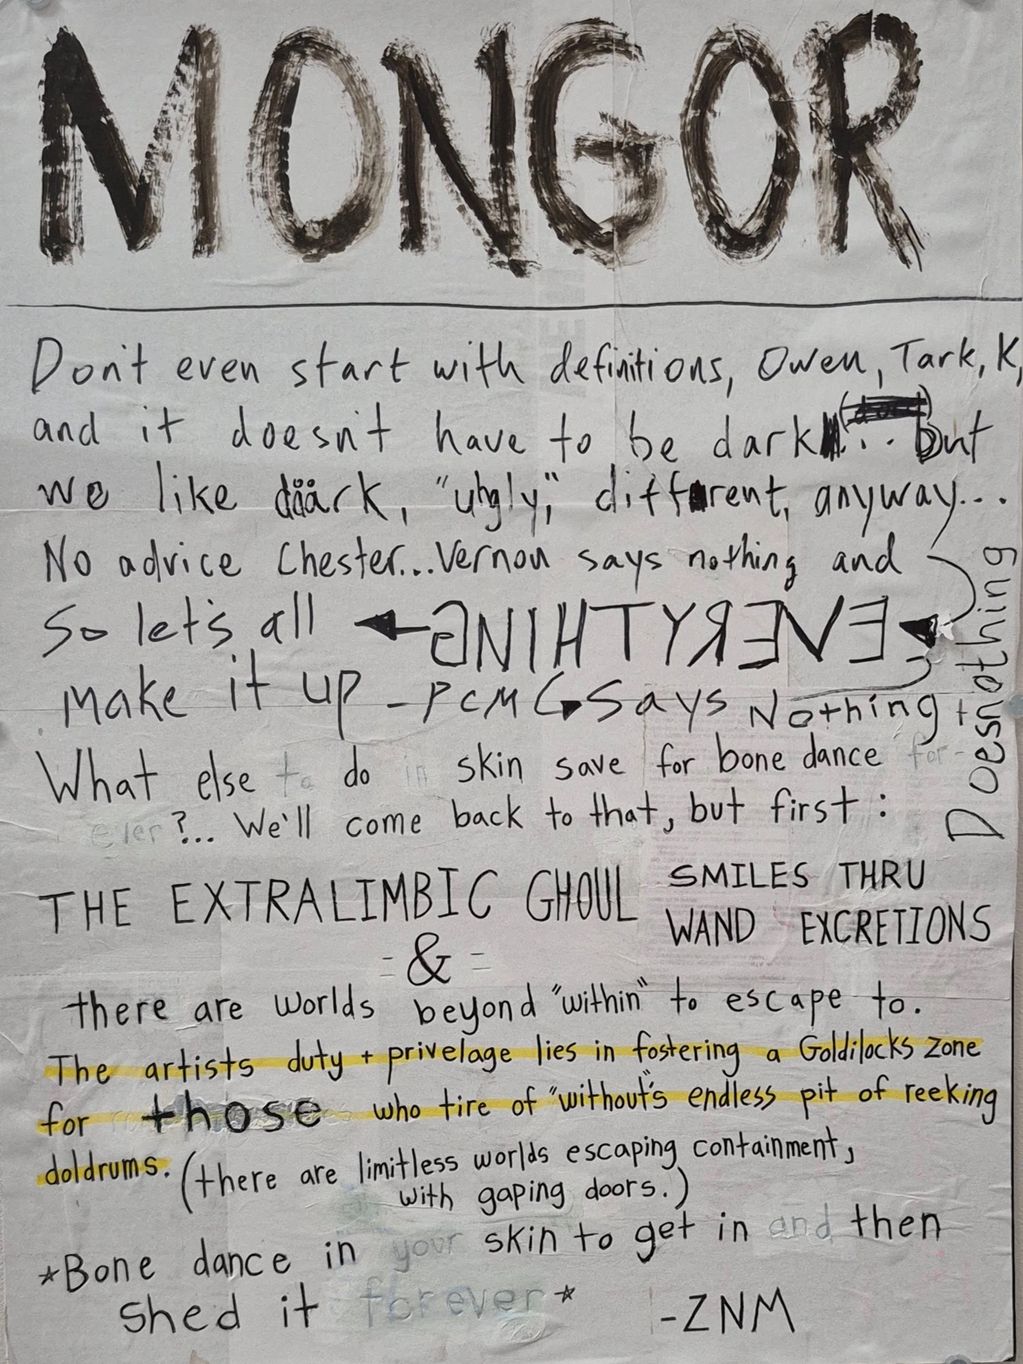 MONGOR
Don't even start with definitions, Owen, Tark, K,
and it doesn't have to be dark... but
we like däärk, "uhgly," different, anyway...
No advice Chester...Vernon says nothing and
So let's all EVERYTHING
make it up - PCMG Says Nothing +
Doesnothing
What else to do in skin save for bone dance for-
ever?... We'll come back to that, but first:
THE EXTRALIMBIC GHOUL SMILES THRU
WAND EXCRETIONS
= & =
there are worlds beyond "within" to escape to.
The artists duty + privelage lies in fostering a Goldilocks zone
for those who tire of "without"'s endless pit of reeking
doldrums. (there are limitless worlds escaping containment,
with gaping doors.)
*Bone dance in your skin to get in and then
shed it forever*
-ZNM